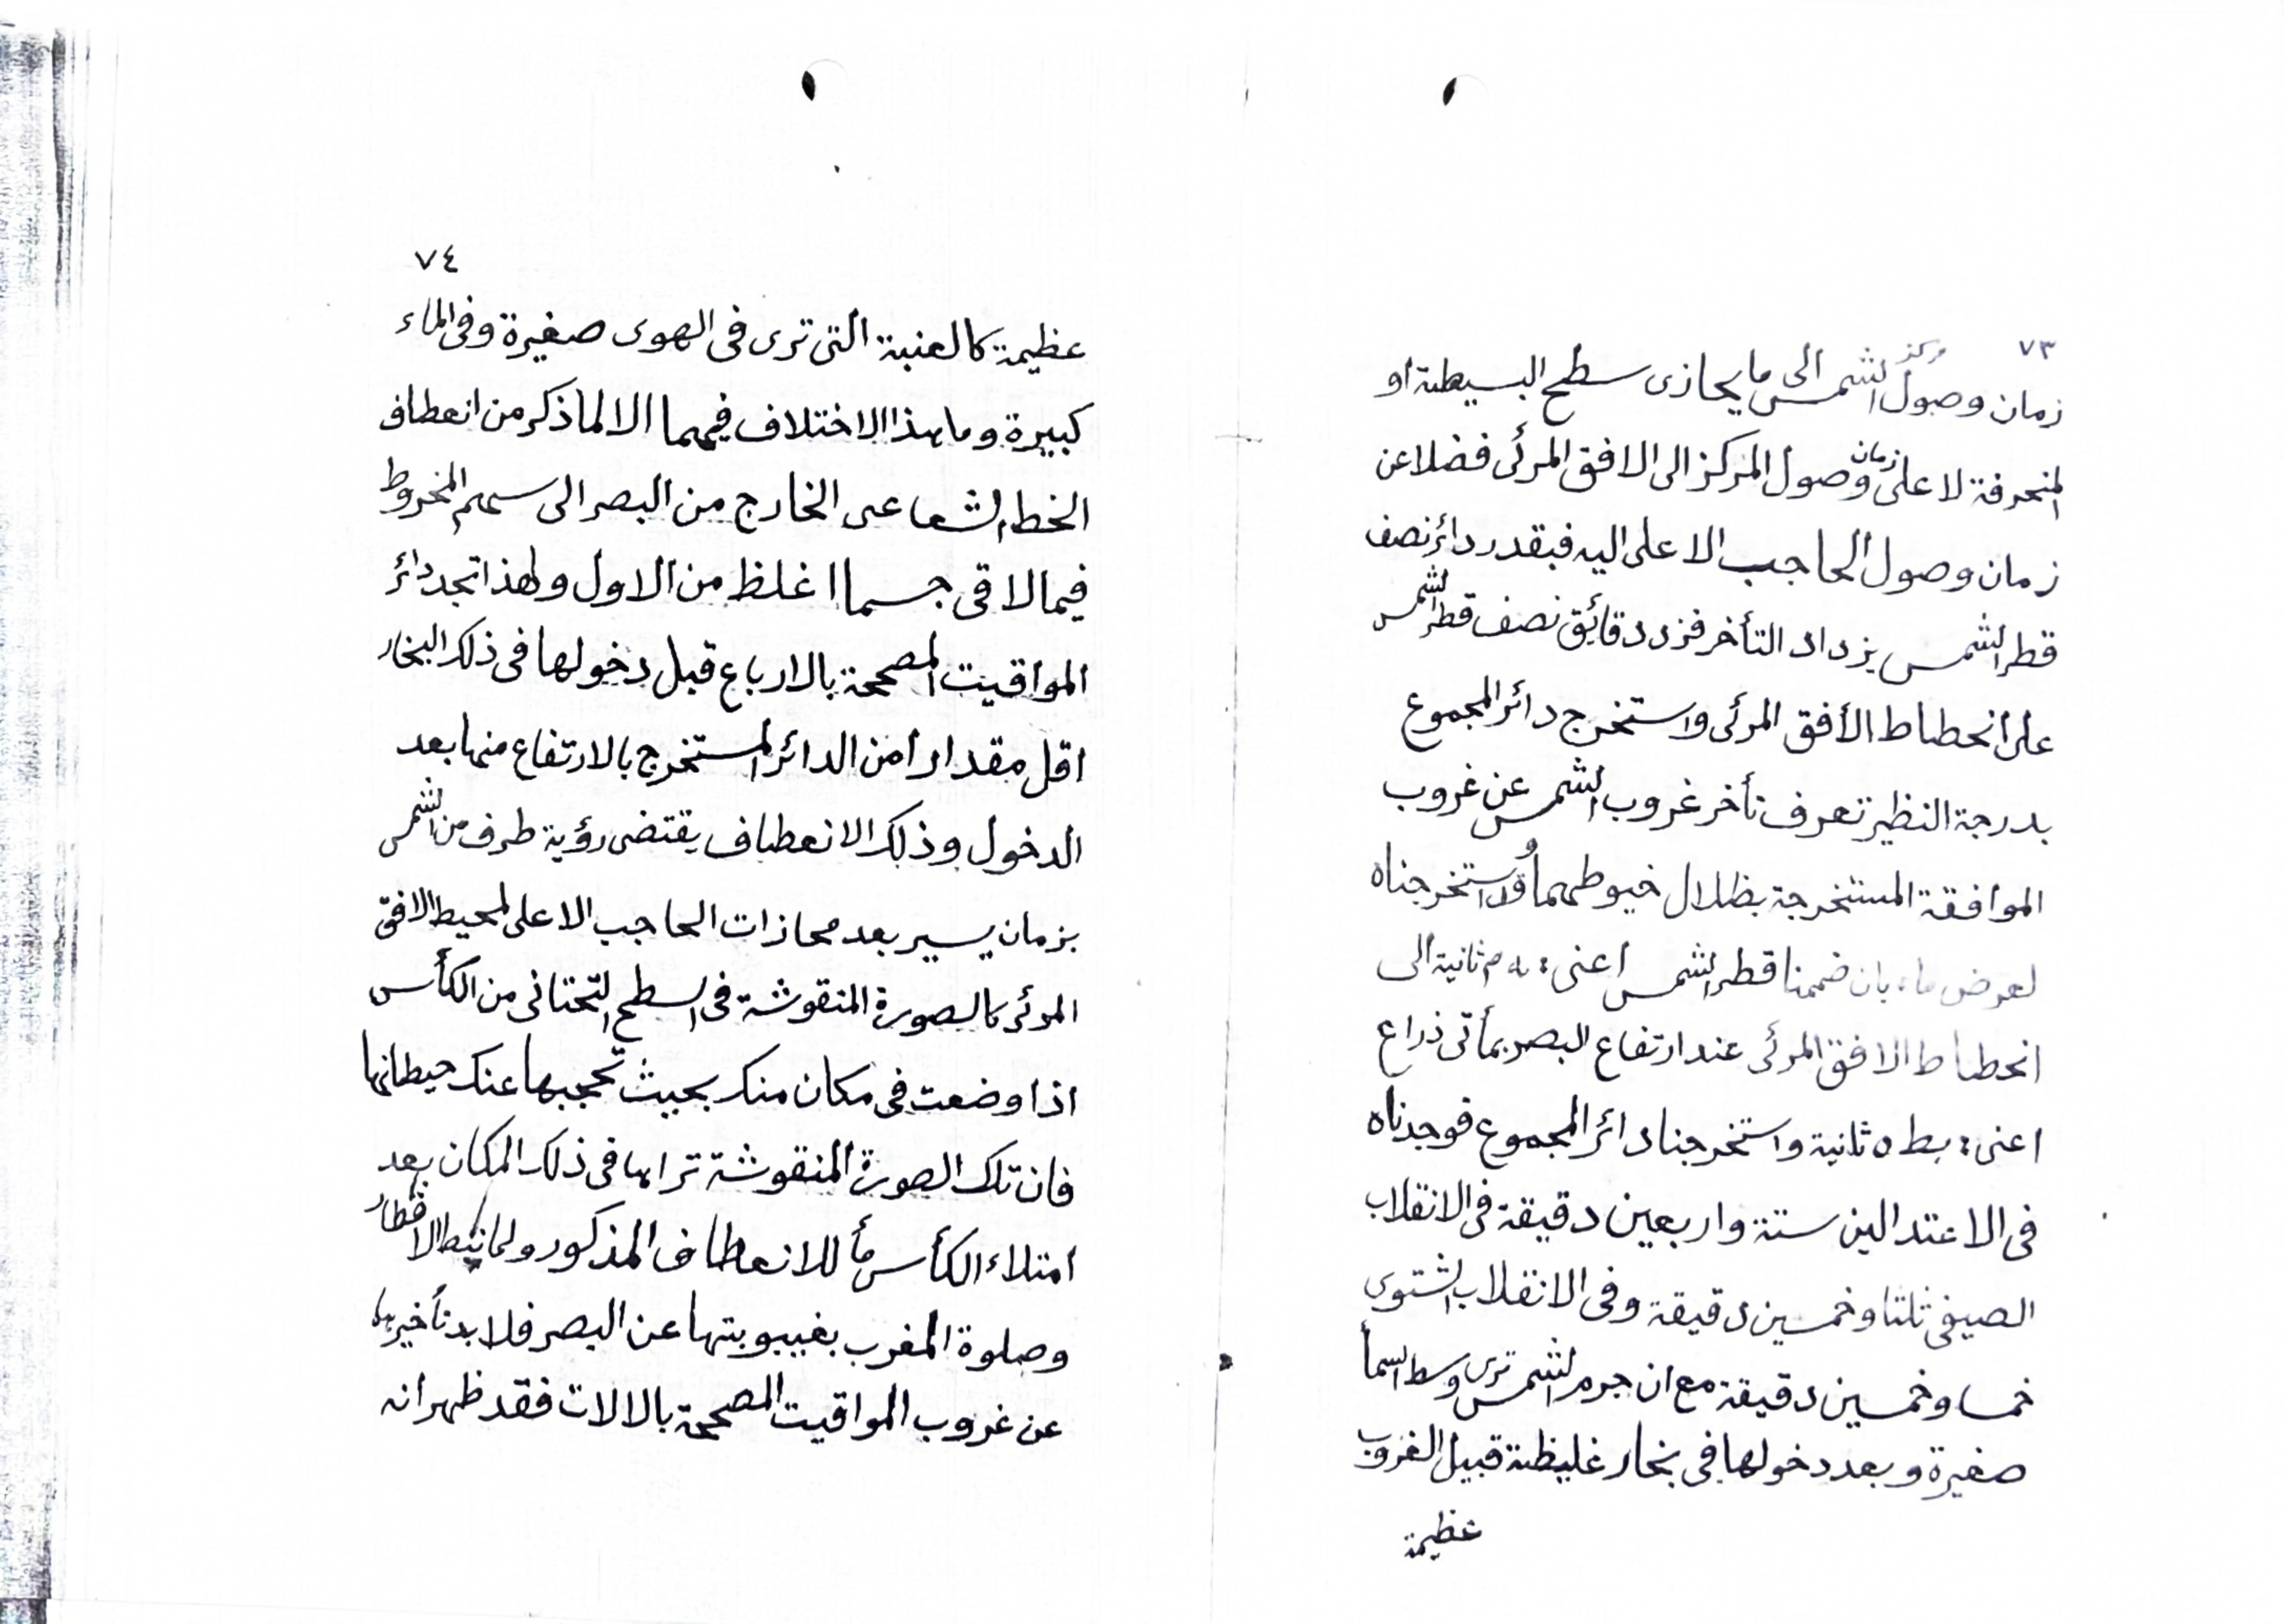 ٧٣
زمان وصول مركز الشمس الى ما يحازى سطح البسيطة او
المنحرفة لا على زمان وصول المركز الى الافق المرئى فضلا عن
زمان وصول الحاجب الاعلى اليه فبقدر دائر نصف
قطر الشمس يزداد التأخر فزد دقائق نصف قطر الشمس
على انحطاط الأفق المرئى واستخرج دائر المجموع
بدرجة النظير تعرف تأخر غروب الشمس عن غروب
الموافقة المستخرجة بظلال خيوطهما وقد استخرجناه
لعرض ما، بان ضممنا قطر الشمس اعنى ثانية الى
انحطاط الافق المرئى عند ارتفاع البصر بمأتى ذراع
اعنى بط ٥ ثانية واستخرجنا دائر المجموع فوجدناه
فى الاعتدالين ستة واربعين دقيقة فى الانقلاب
الصيفى ثلثا وخمسين دقيقة وفى الانقلاب الشتوى
خمسا وخمسين دقيقة مع ان جرم الشمس ترى وسط السمأ
صغيرة وبعد دخولها فى بخار غليظة قبيل الغروب
عظيمة
٧٤
عظيمة كالعنبة التى ترى فى الهوى صغيرة وفى الماء
كبيرة وما هذا الاختلاف فيهما الا لما ذكر من انعطاف
الخط الشعاعى الخارج من البصر الى سهم المخروط
فيما لاقى جسما اغلظ من الاول ولهذا تجد دائر
المواقيت المصححة بالارباع قبل دخولها فى ذلك البخار
اقل مقدارا من الدائر المستخرج بالارتفاع منها بعد
الدخول وذلك الانعطاف يقتضى رؤية طرف من الشمس
بزمان يسير بعد محازات الحاجب الاعلى لمحيط الافق
المرئ كالصورة المنقوشة فى السطح التحتانى من الكأس
اذا وضعت فى مكان منك بحيث تحجبها عنك حيطانها
فان تلك الصورة المنقوشة تراها فى ذلك المكان بعد
امتلاء الكأس مأ للانعطاف المذكور ولما نيط الافطار
وصلوة المغرب بغيبوبتها عن البصر فلا بد تأخيرها
عن غروب المواقيت المصححة بالالات فقد ظهر انه